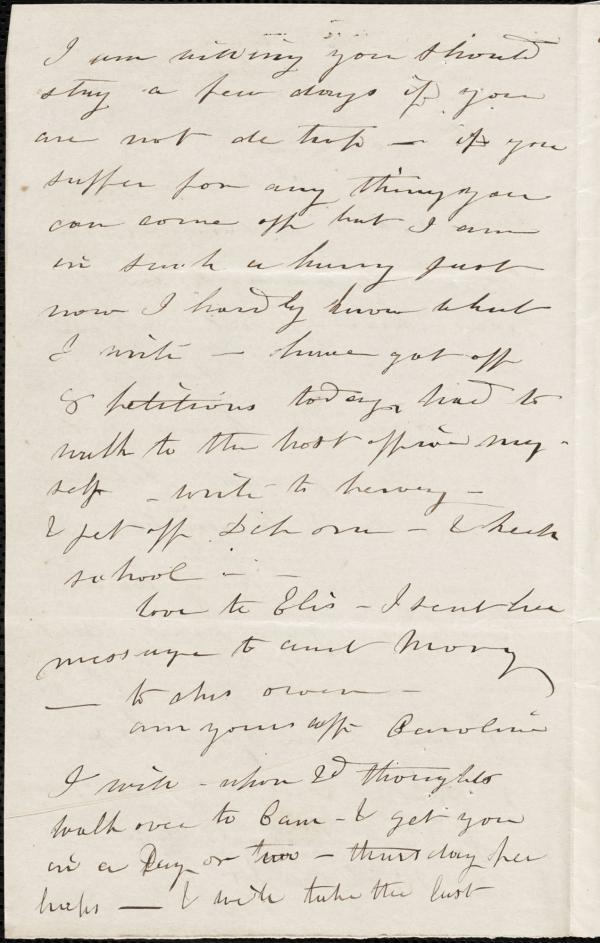 I am willing you should
stay a few days if you
are not de trop — if you
suffer for any thing you
can come off but I am
in such a hurry just
now I hardly know what
I write — have got off
8 petitions today, had to
walk to the post office my-
self - write to hervey -
& get off Deborah - & keep
school - -
love to Elis - I sent her
message to aunt Mary
— 
am yours aff Caroline
I will - upon 2d thoughts
walk over to Cam - & get you
in a Day or two - thursday per
haps — & will take the last